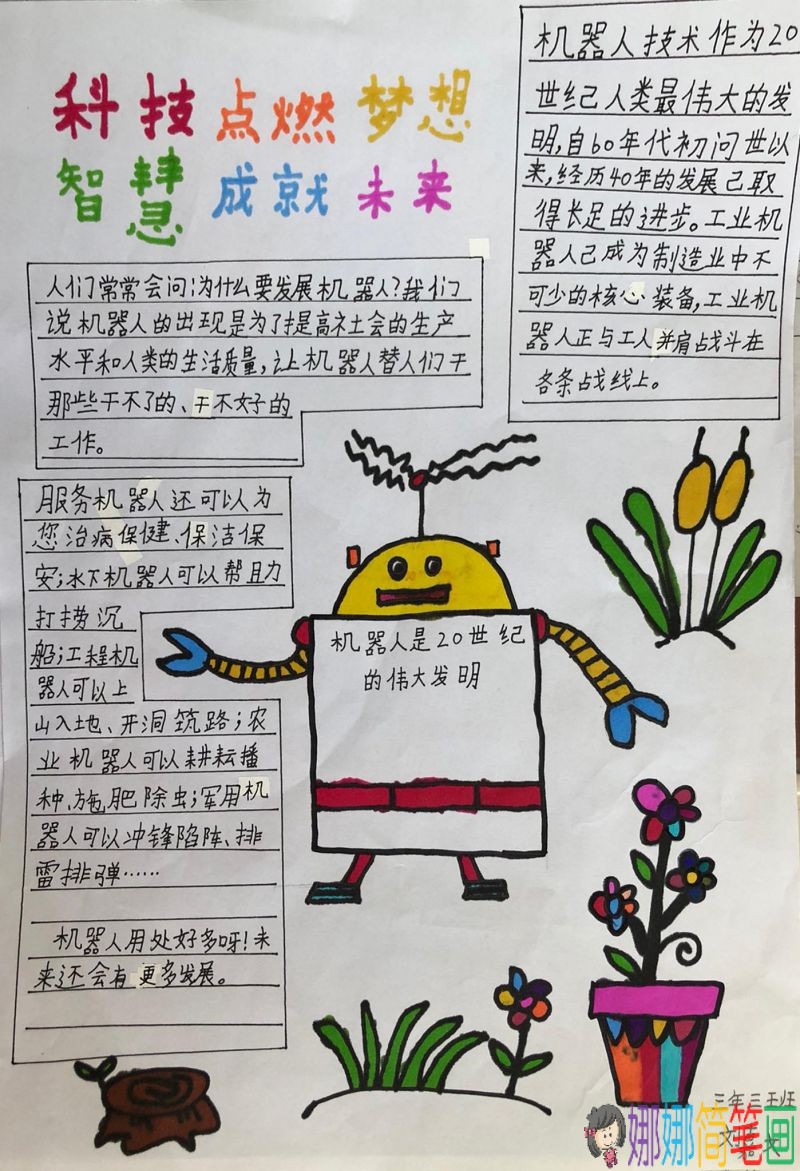 科技点燃梦想
智慧成就未来
机器人技术作为20
世纪人类最伟大的发
明,自60年代初问世以
来,经历40年的发展己取
得长足的进步。工业机
器人己成为制造业中不
可少的核心装备,工业机
器人正与工人并肩战斗在
各条战线上。
人们常常会问:为什么要发展机器人?我们
说机器人的出现是为了提高社会的生产
水平和人类的生活质量,让机器人替人们干
那些干不了的、干不好的
工作。
服务机器人还可以为
您治病保健、保洁保
安;水下机器人可以帮助
打捞沉
船;工程机
器人可以上
山入地、开洞筑路;农
业机器人可以耕耘播
种、施肥除虫;军用机
器人可以冲锋陷阵、排
雷排弹……
机器人用处好多呀!未
来还会有更多发展。
机器人是20世纪
的伟大发明
三年三班
娜娜简笔画